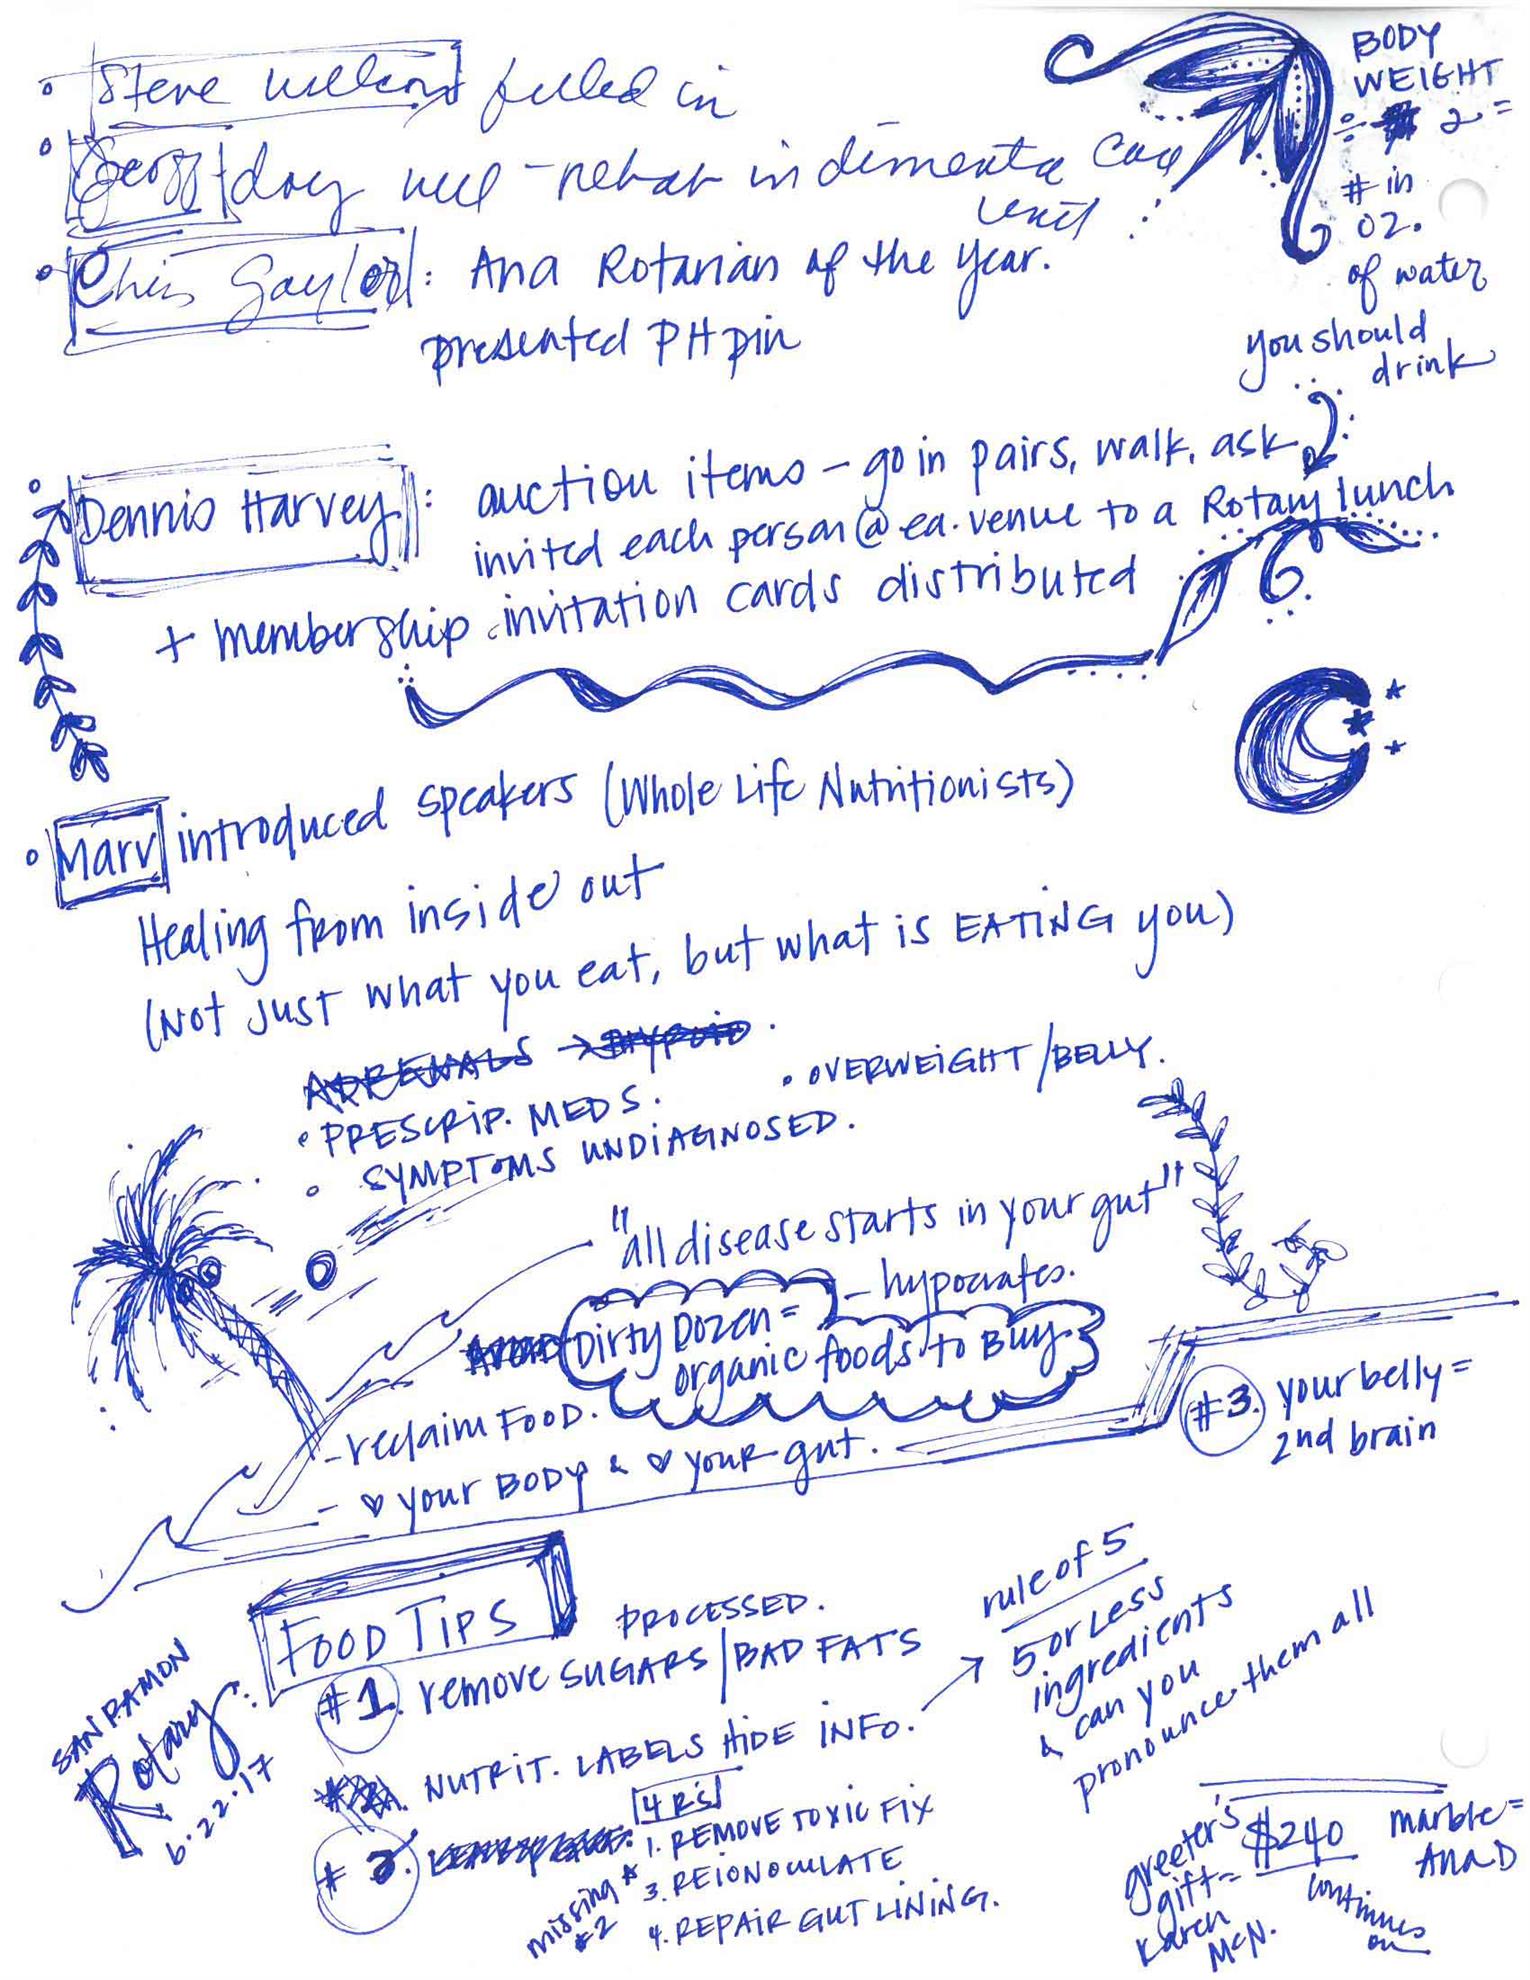 Steve Wilcox filled in
doing well - rehab in dementia care
unit
Chris Gaylord: Ana Rotarian of the Year.
presented PH pin
BODY
WEIGHT
÷ 2 =
# in
oz.
of water
you should
drink
Dennis Harvey: auction items - go in pairs, walk, ask
invited each person @ ea. venue to a Rotary lunch
+ membership invitation cards distributed
Marv introduced speakers (Whole Life Nutritionists)
Healing from inside out
(Not just what you eat, but what is EATING you)
ADRENALS →
• OVERWEIGHT/BELLY.
• PRESCRIP. MEDS.
• SYMPTOMS UNDIAGNOSED.
"all disease starts in your gut"
- hypocrates.
Dirty Dozen =
organic foods to Buy
- reclaim FOOD.
- ♥ your BODY & ♥ your gut.
#3. your belly =
2nd brain
FOOD TIPS
PROCESSED.
#1. remove SUGARS/BAD FATS
NUTRIT. LABELS HIDE INFO. →
rule of 5
5 or Less
ingredients
& can you
pronounce them all
SAN RAMON
Rotary
6.22.17
4 R'S
1. REMOVE TOXIC FIX
missing * #2
3. REIONOCULATE
4. REPAIR GUT LINING.
greeter's
gift =
Karen
McN.
$240
continues
on
marble =
Ana D